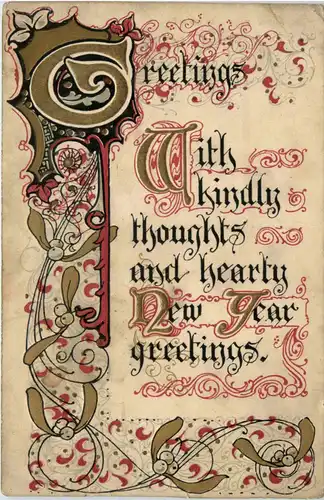 Greetings
With
kindly
thoughts
and hearty
New Year
greetings.